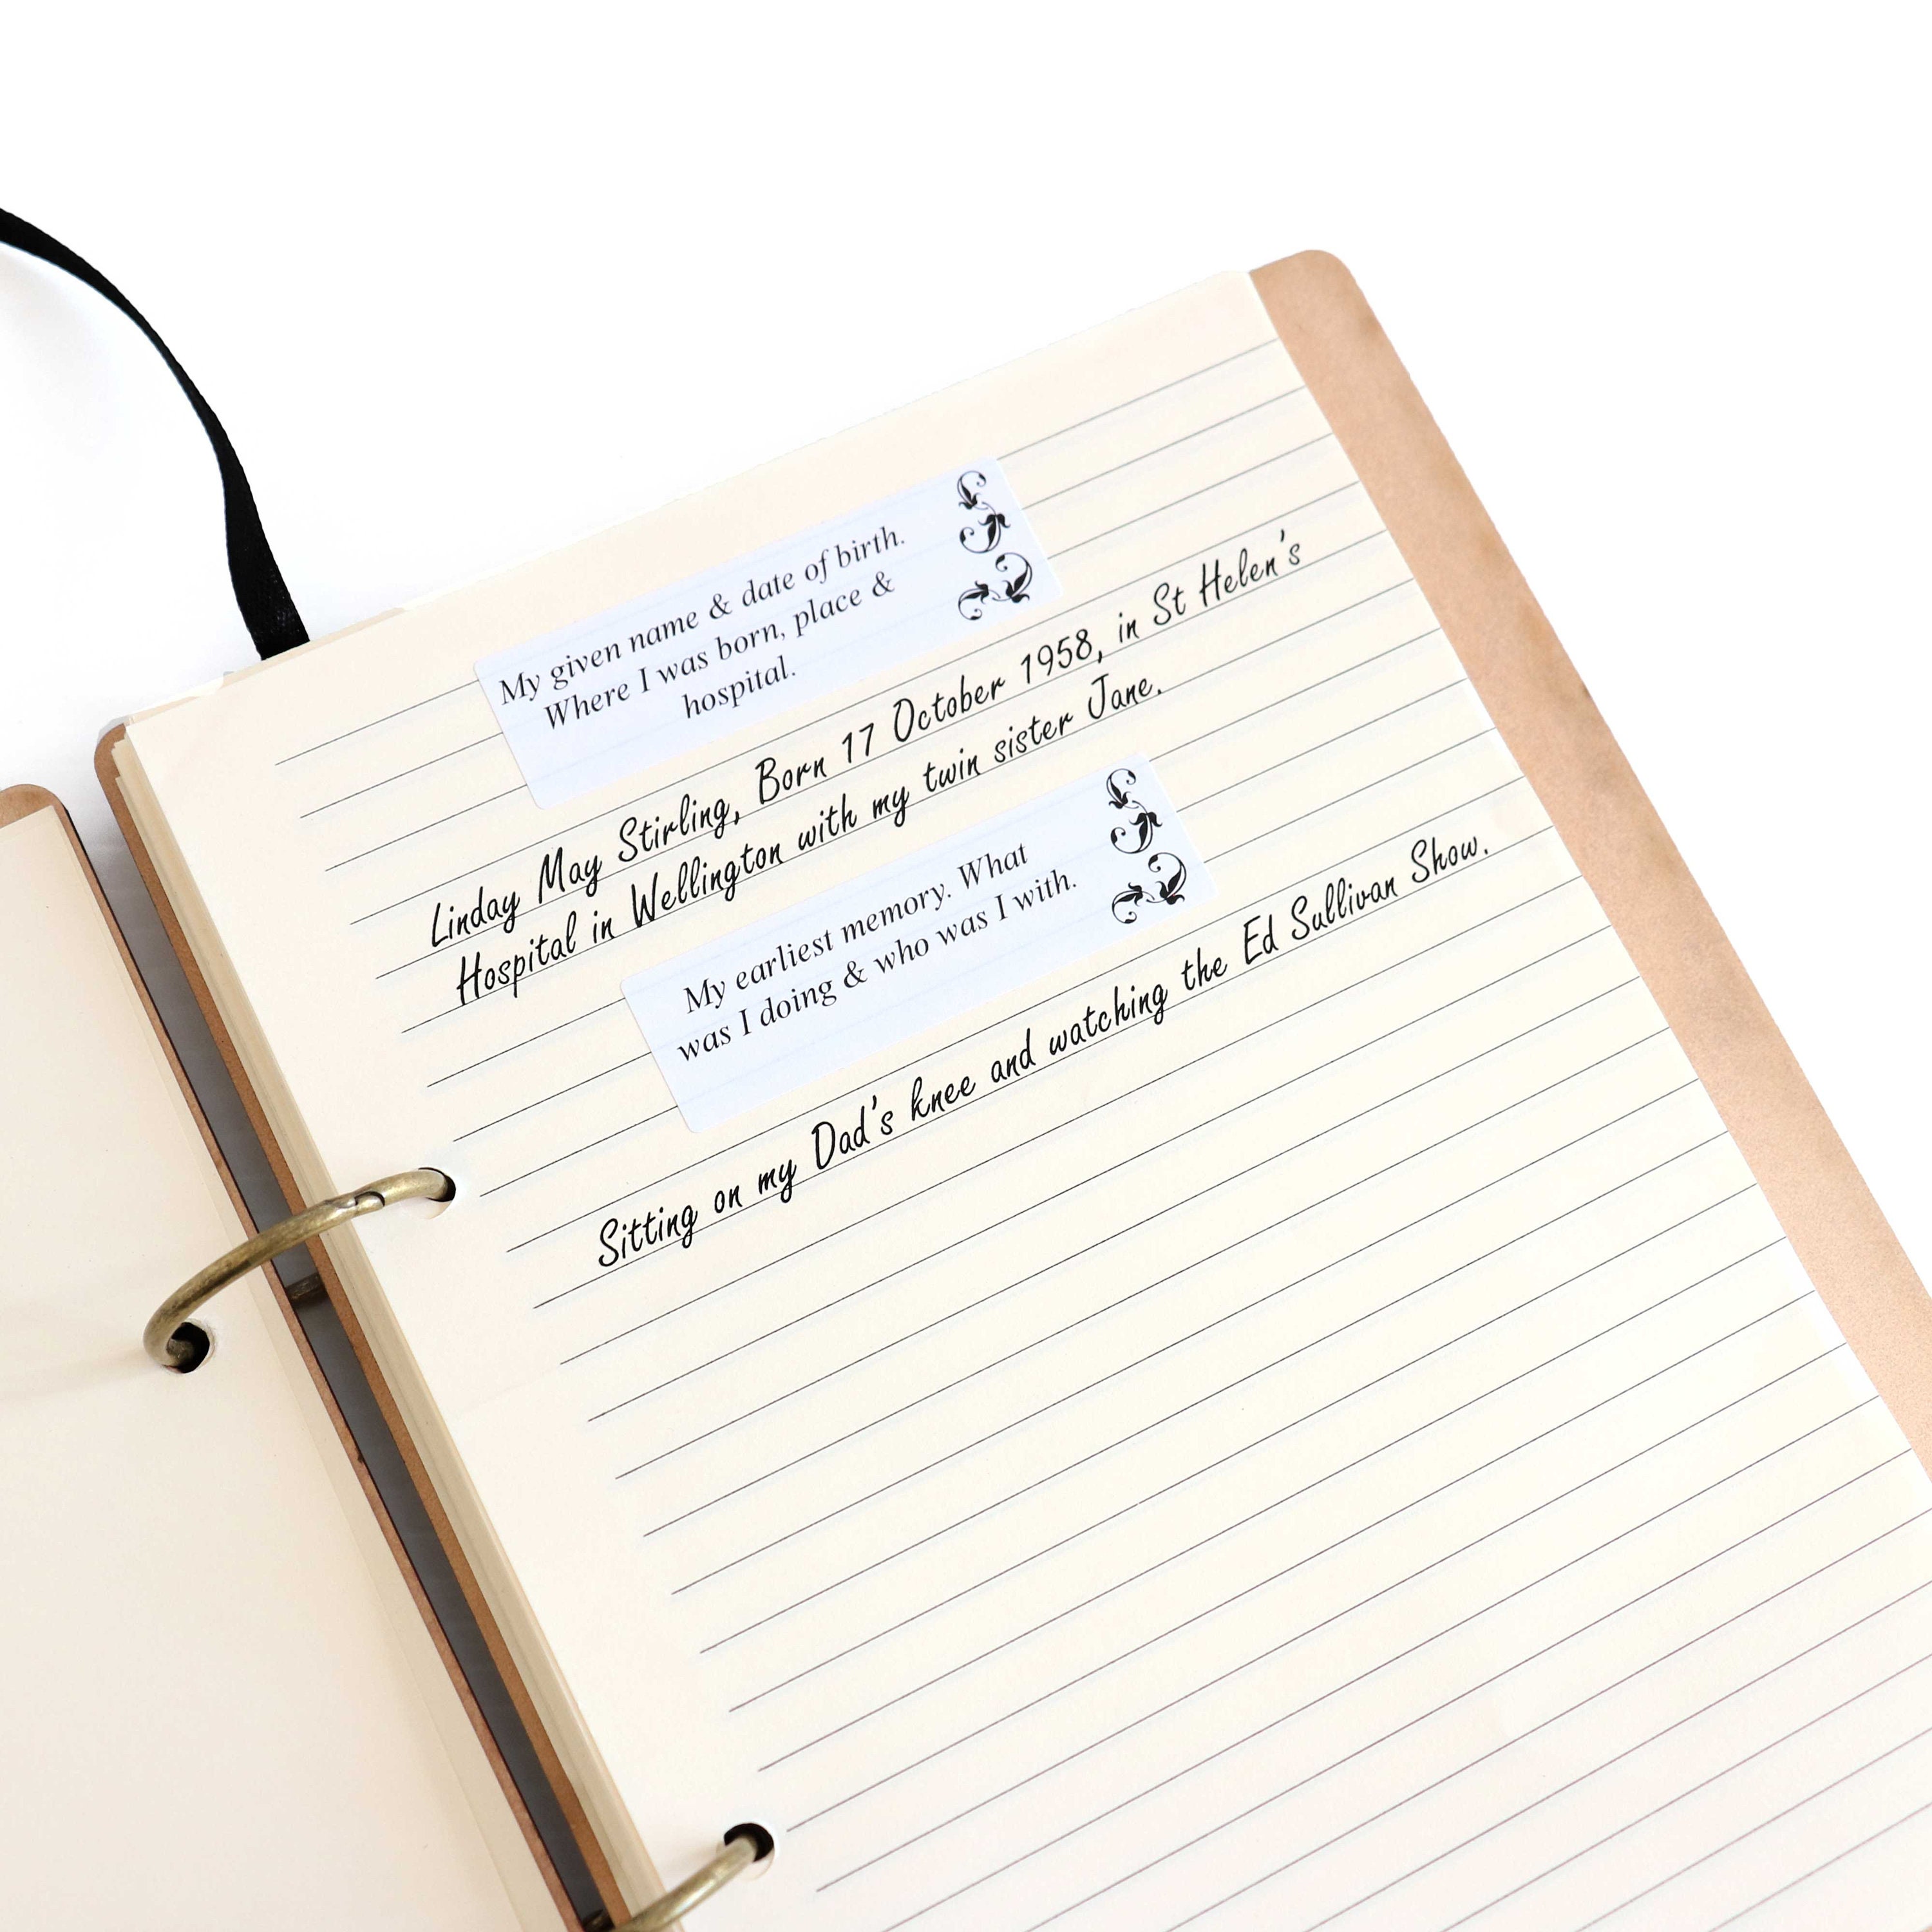 My given name & date of birth.
Where I was born, place &
hospital.
Linday May Stirling, Born 17 October 1958, in St Helen's
Hospital in Wellington with my twin sister Jane.
My earliest memory. What
was I doing & who was I with.
Sitting on my Dad's knee and watching the Ed Sullivan Show.